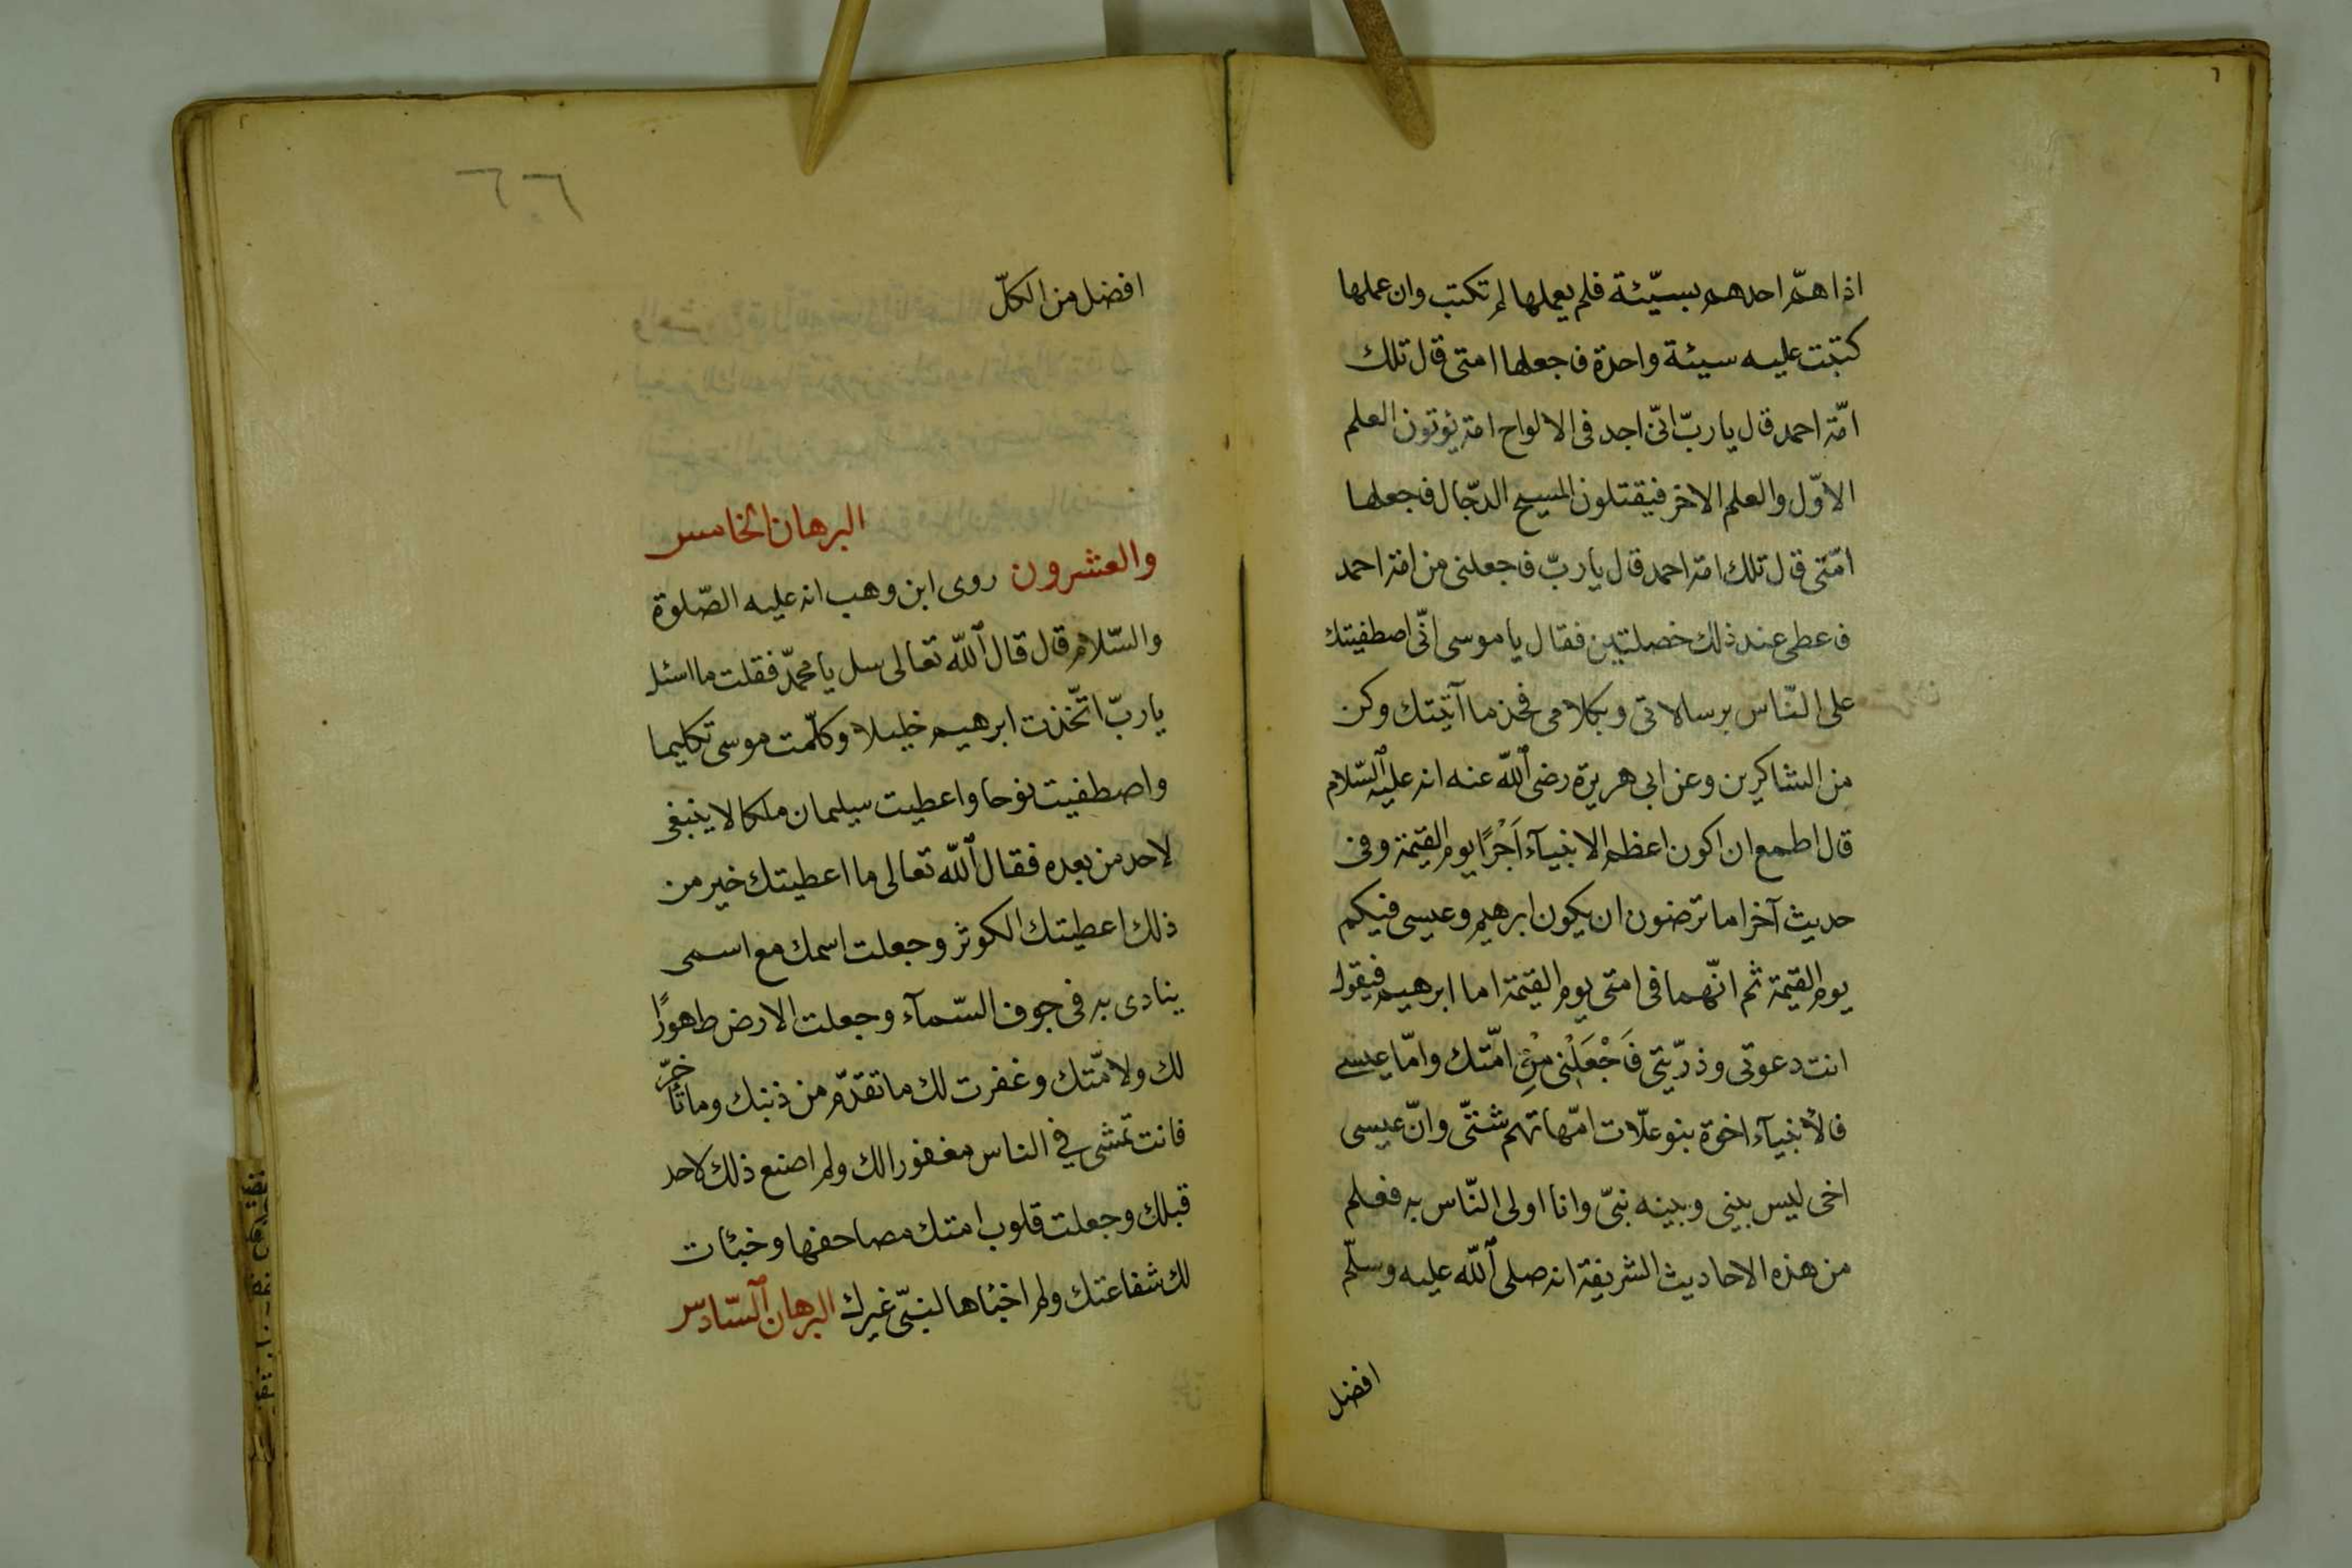 اذا همّ احدهم بسيّئة فلم يعملها لم تكتب وان عملها
كتبت عليه سيئة واحدة فاجعلها امتى قال تلك
امّة احمد قال يا ربّ انّى اجد فى الالواح امة يؤتون العلم
الاوّل والعلم الاخر فيقتلون المسيح الدجّال فاجعلها
امّتى قال تلك امة احمد قال يا ربّ فاجعلنى من امة احمد
فاعطى عند ذلك خصلتين فقال يا موسى انّى اصطفيتك
على النّاس برسالاتى وبكلامى فخذ ما آتيتك وكن
من الشاكرين وعن ابى هريرة رضى الله عنه انه عليه السّلام
قال اطمع ان اكون اعظم الانبيآء اَجْرًا يوم القيمة وفى
حديث آخر اما ترضون ان يكون ابرهيم وعيسى فيكم
يوم القيمة ثم انّهما فى امتى يوم القيمة اما ابرهيم فيقول
انت دعوتى وذرّيتى فَاجْعَلْنى مِنْ امّتك وامّا عيسى
فالأنبيآء اخوة بنو علّات امّهاتهم شتّى وانّ عيسى
اخى ليس بينى وبينه نبىّ وانا اولى النّاس به فعلم
من هذه الاحاديث الشريفة انه صلى الله عليه وسلّم
افضل
٦
افضل من الكلّ
البرهان الخامس
والعشرون روى ابن وهب انه عليه الصّلوة
والسّلام قال قال الله تعالى سل يا محمدّ فقلت ما اسئل
يا ربّ اتّخذت ابرهيم خليلا وكلّمت موسى تكليما
واصطفيت نوحا واعطيت سيلمان ملكا لا ينبغى
لاحد من بعده فقال الله تعالى ما اعطيتك خير من
ذلك اعطيتك الكوثر وجعلت اسمك مع اسمى
ينادى به فى جوف السّمآء وجعلت الارض طهورًا
لك ولامّتك وغفرت لك ما تقدّم من ذنبك وما تأخّر
فانت تمشى فى الناس مغفورا لك ولم اصنع ذلك لاحد
قبلك وجعلت قلوب امتك مصاحفها وخبئات
لك شفاعتك ولم اخبئاها لنبىّ غيرك البرهان السّادس